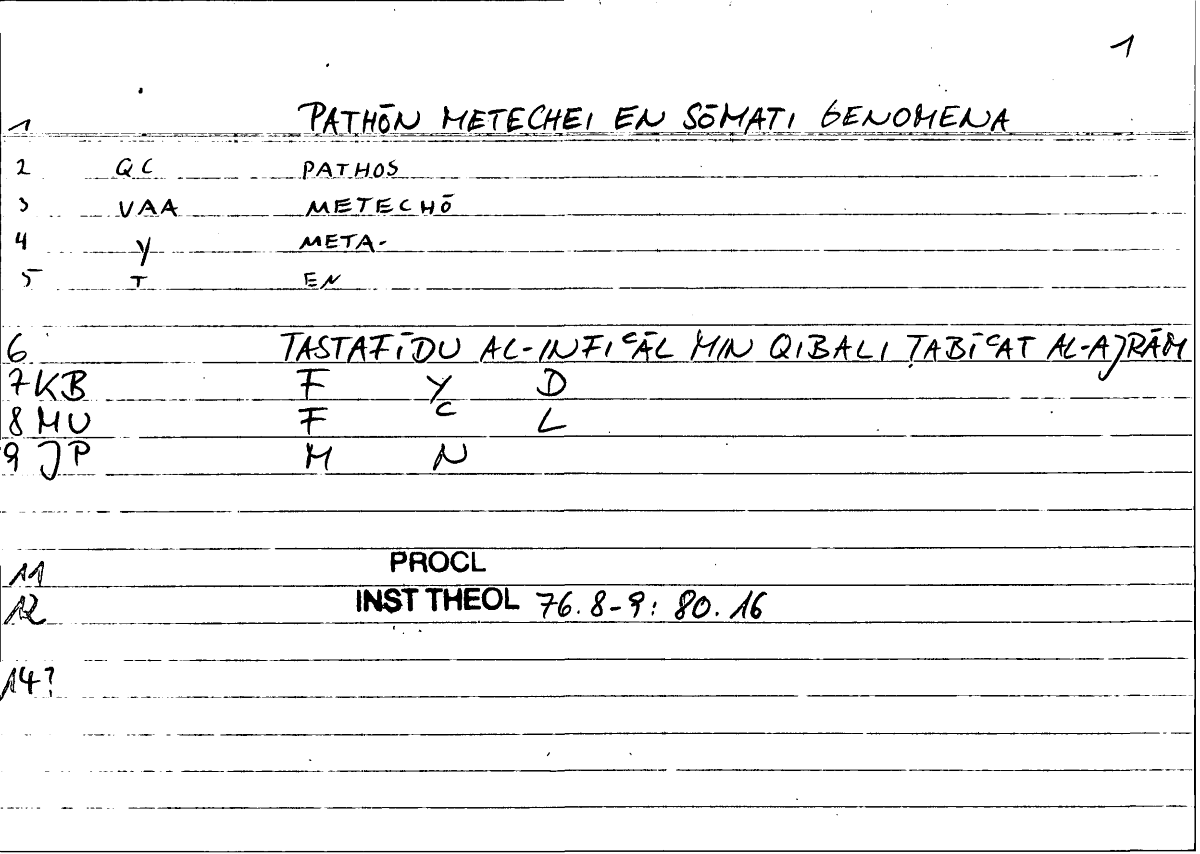 1
1 PATHŌN METECHEI EN SŌMATI GENOMENA
2 QC PATHOS
3 VAA METECHŌ
4 Y META-
5 T EN
6 TASTAFĪDU AL-INFIᶜĀL MIN QIBALI ṬABĪᶜAT AL-AJRĀM
7 KB F Y D
8 MU F C L
9 JP M N
11 PROCL
12 INST THEOL 76.8-9: 80.16
14?